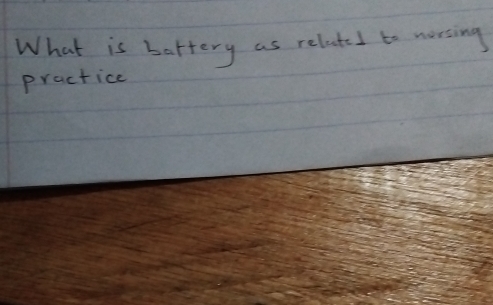 What is battery as related to nursing
practice